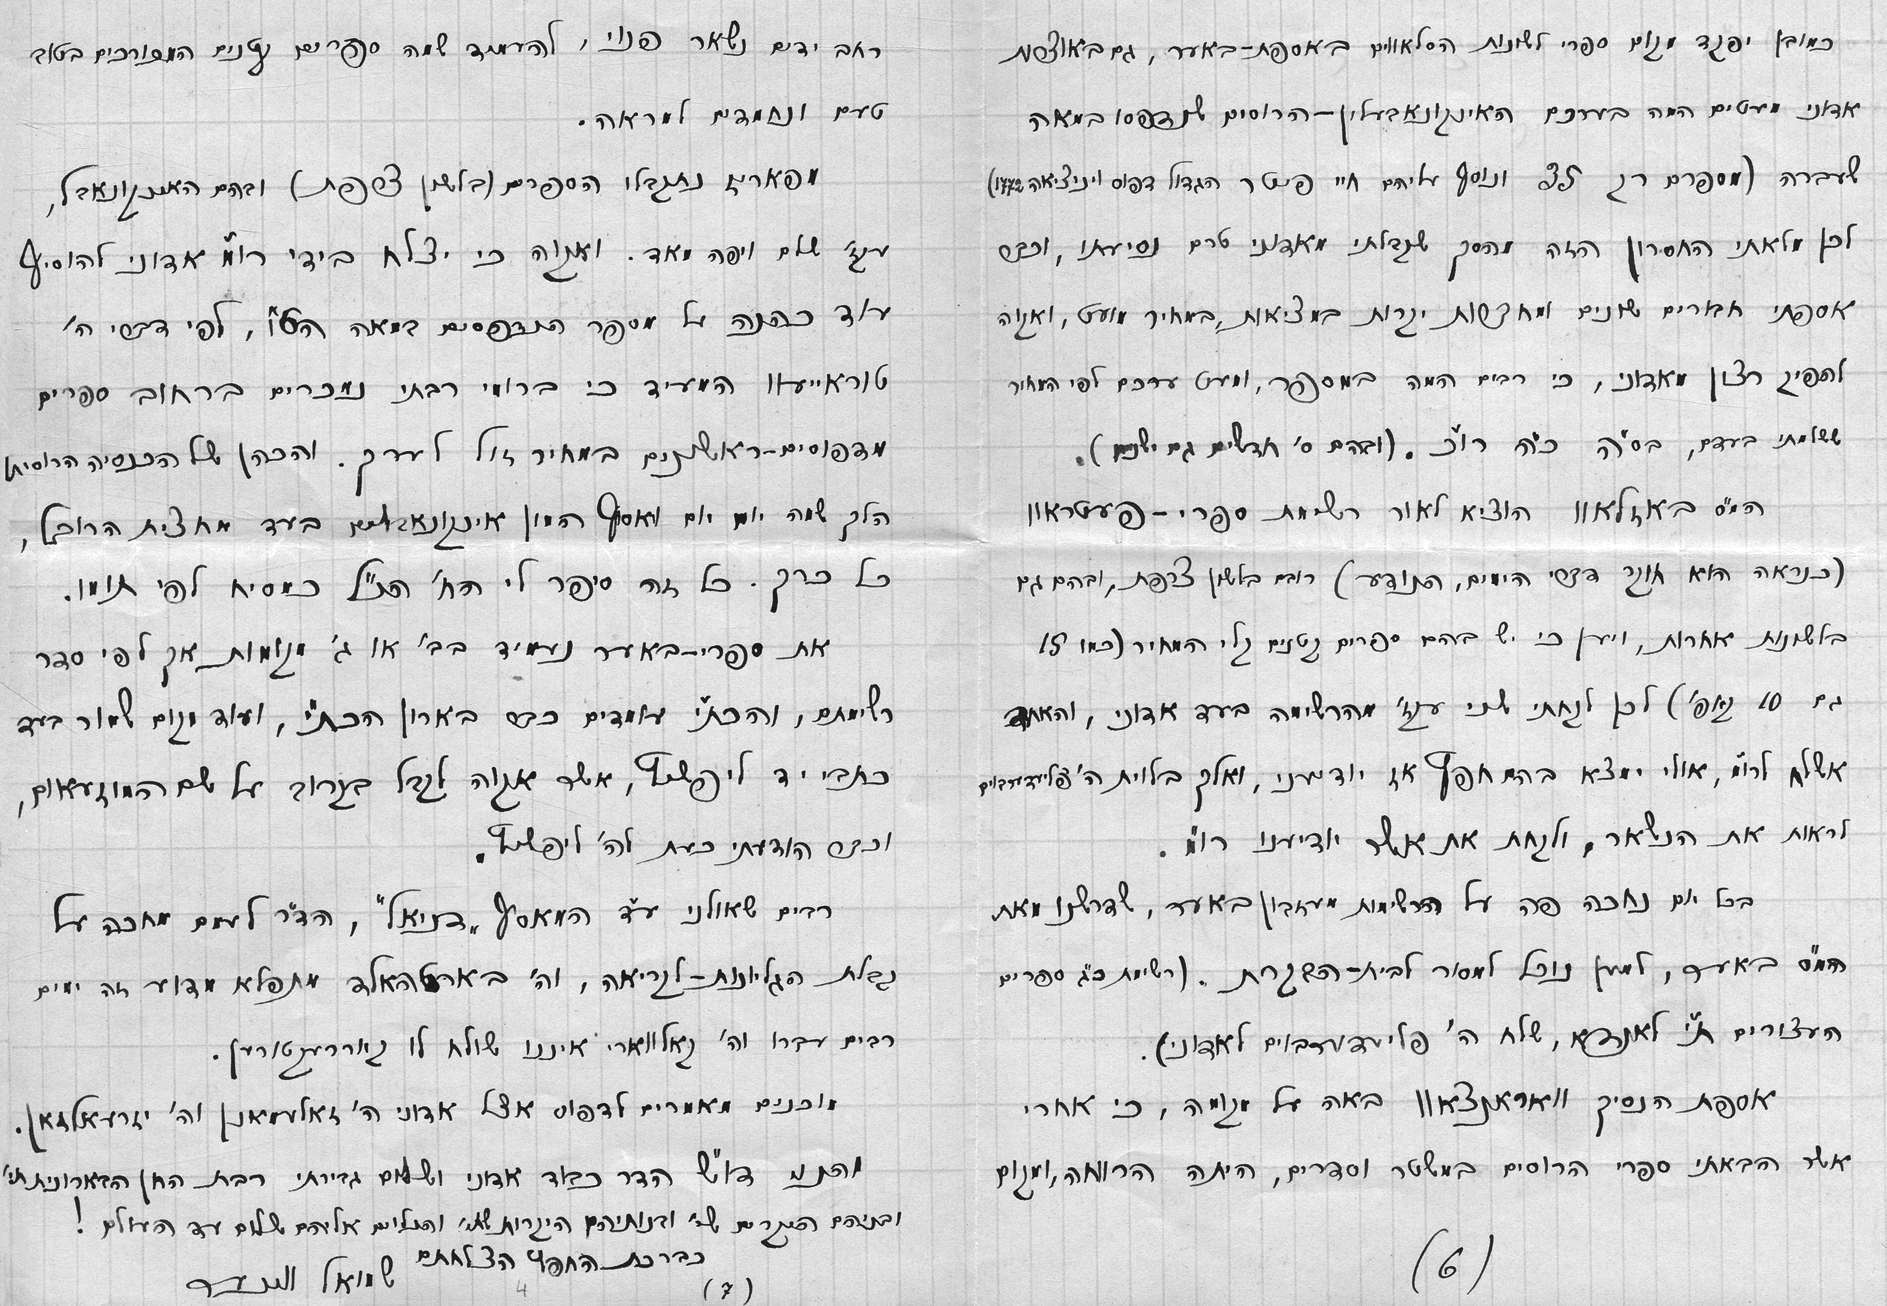 כמובן יפקד מקום ספרי לשונות הסלאווים באספת-באער, גם באוצרות
אדוני מעטים המה בערכם האינקונאבעלין-הרוסים שנדפסו במאה
שעברה (מספרם רק 35 ונוסף עליהם חיי פעטר הגדול דפוס וויניציאה 1772)
לכן מלאתי החסרון הזה מהסך שקבלתי מאדוני טרם נסיעתו, וכבר
אספתי חבורים שונים ומחברות יקרות במציאות, במחיר מועט, ואקוה
להפיק רצון מאדוני, כי רבים המה במספר, ומעט ערכם לפי המחיר
ששלמתי בעדם, בס״ה כ״ח רו״כ. (ובהם ס׳ חדשים גם ישנים).
המו״ס באזלאוו הוציא לאור רשימת ספרי-פעטראוו
(כנראה הוא חוקר דברי הימים, הנודע) רובם בלשון צרפת, ובהם גם
בלשונות אחרות, ויען כי יש בהם ספרים קטנים קלי המחיר (כמו 15
גם 10 קאפ׳) לכן לקחתי שני עקז׳ מהרשימה בעד אדוני, והאחד
אשלח לרו״מ, אולי ימצא בהם חפץ אז יודיעני, ואלך בלוית ה׳ פליידערבוים
לראות את הנשאר, ולקחת את אשר יודיענו רו״מ.
בכל יום נחכה פה על הרשימות מעזבון באער, שדרשנו מאת
המו״ס באער, למען נוכל למסור לבית-הבקרת. (רשימת כ״ג ספרים
העצורים ת״י לאנדא, שלח ה׳ פליידערבוים לאדוני).
אספת הנסיך וואראנצאוו באה על מקומה, כי אחרי
אשר הבאתי ספרי הרוסים במשטר וסדרים, היתה הרוחה, ומקום
(6)
רחב ידים נשאר פנוי, להעמיד שמה ספרים קטנים המכורכים בטוב
טעם ונחמדים למראה.
מפאריז נתקבלו הספרים (בלשון צרפת) ובהם האינקונאבל,
עקז׳ שלם ויפה מאד. ואקוה כי יצלח בידי רו״מ אדוני להוסיף
עוד כהנה על מספר הנדפסים במאה הט״ו, לפי דברי ה׳
טוראייעוו המעיד כי ברומי רבתי נמכרים ברחוב ספרים
מדפוסים-ראשונים במחיר זול לערך. והכהן של הכנסיה הרוסית
הלך שמה יום יום ואסף המון אינקונאבלים בעד מחצית הרובל,
כל כרך. כל זה סיפר לי הח׳ הנ״ל כמסיח לפי תומו.
את ספרי-באער נעמיד בב׳ או ג׳ מקומות, אך לפי סדר
רשימתם, והכת״י עומדים כבר בארון הכת״י, ועוד מקום שמור בעד
כתבי יד ליפשיץ, אשר אקוה לקבל בקרוב על שם המוזעאום,
וכבר הודעתי כעת לה׳ ליפשיץ.
רבים שאלוני ע״ד המאסף „דניאל״, הד״ר לעמם מחכה על
קבלת הגליונות-לקריאה, וה׳ בארטהאלד מתפלא מדוע זה ימים
רבים עברו וה׳ קאלווארי איננו שולח לו קאררעקטורען.
מוכנים מאמרים לדפוס אצל אדוני ה׳ זאלעמאנן וה׳ יזרעאלזאן.
והנני דו״ש הדר כבוד אדוני ושלום גבירתי רבת החן הבארונית תי׳
ובניהם היקרים שי׳ ובנותיהם היקרות שתי׳ והנלוים אליהם שלום עד העולם!
כברכת החפץ הצלחתם
שמואל ווינער
(7) 4